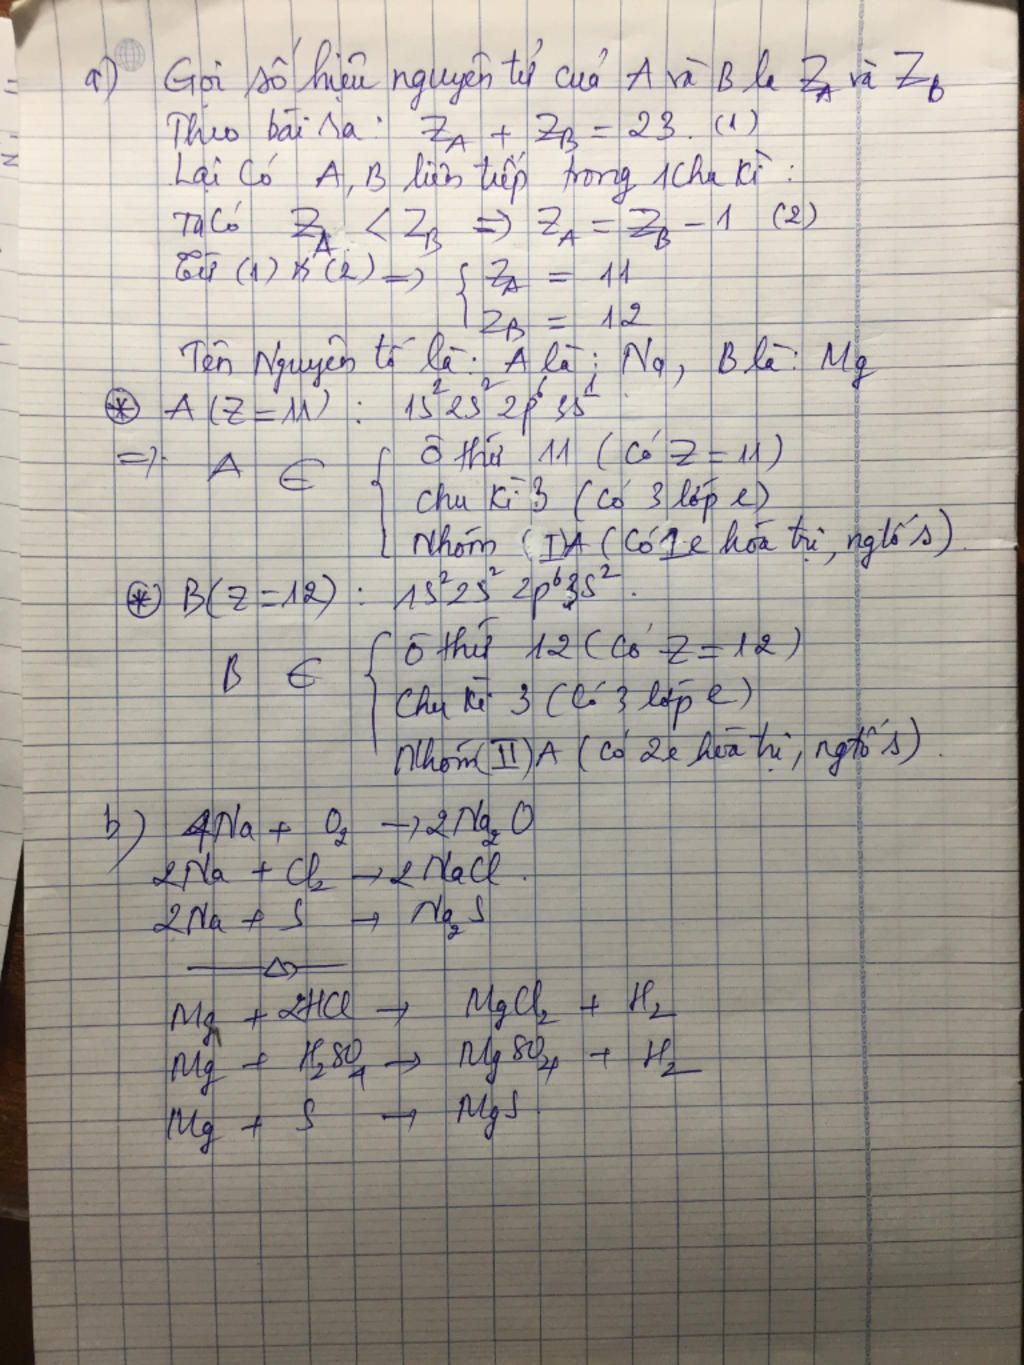 a) Gọi số hiệu nguyên tử của A và B là Z_A và Z_B
Theo bài ra: Z_A + Z_B = 23. (1)
Lại có A, B liên tiếp trong 1 chu kì:
Ta có Z_A < Z_B => Z_A = Z_B - 1 (2)
Từ (1) & (2) => { Z_A = 11
Z_B = 12
Tên Nguyên tố là: A là: Na, B là: Mg
(*) A (Z = 11) : 1s² 2s² 2p⁶ 3s¹
=> A ∈ { Ô thứ 11 (có Z = 11)
Chu kì 3 (có 3 lớp e)
Nhóm (I)A (có 1e hóa trị, ngtố s)
(*) B (Z = 12) : 1s² 2s² 2p⁶ 3s².
B ∈ { Ô thứ 12 (có Z = 12)
Chu kì 3 (có 3 lớp e)
Nhóm (II)A (có 2e hóa trị, ngtố s).
b) 4Na + O₂ → 2Na₂O
2Na + Cl₂ → 2NaCl.
2Na + S → Na₂S
Mg + 2HCl → MgCl₂ + H₂
Mg + H₂SO₄ → MgSO₄ + H₂
Mg + S → MgS